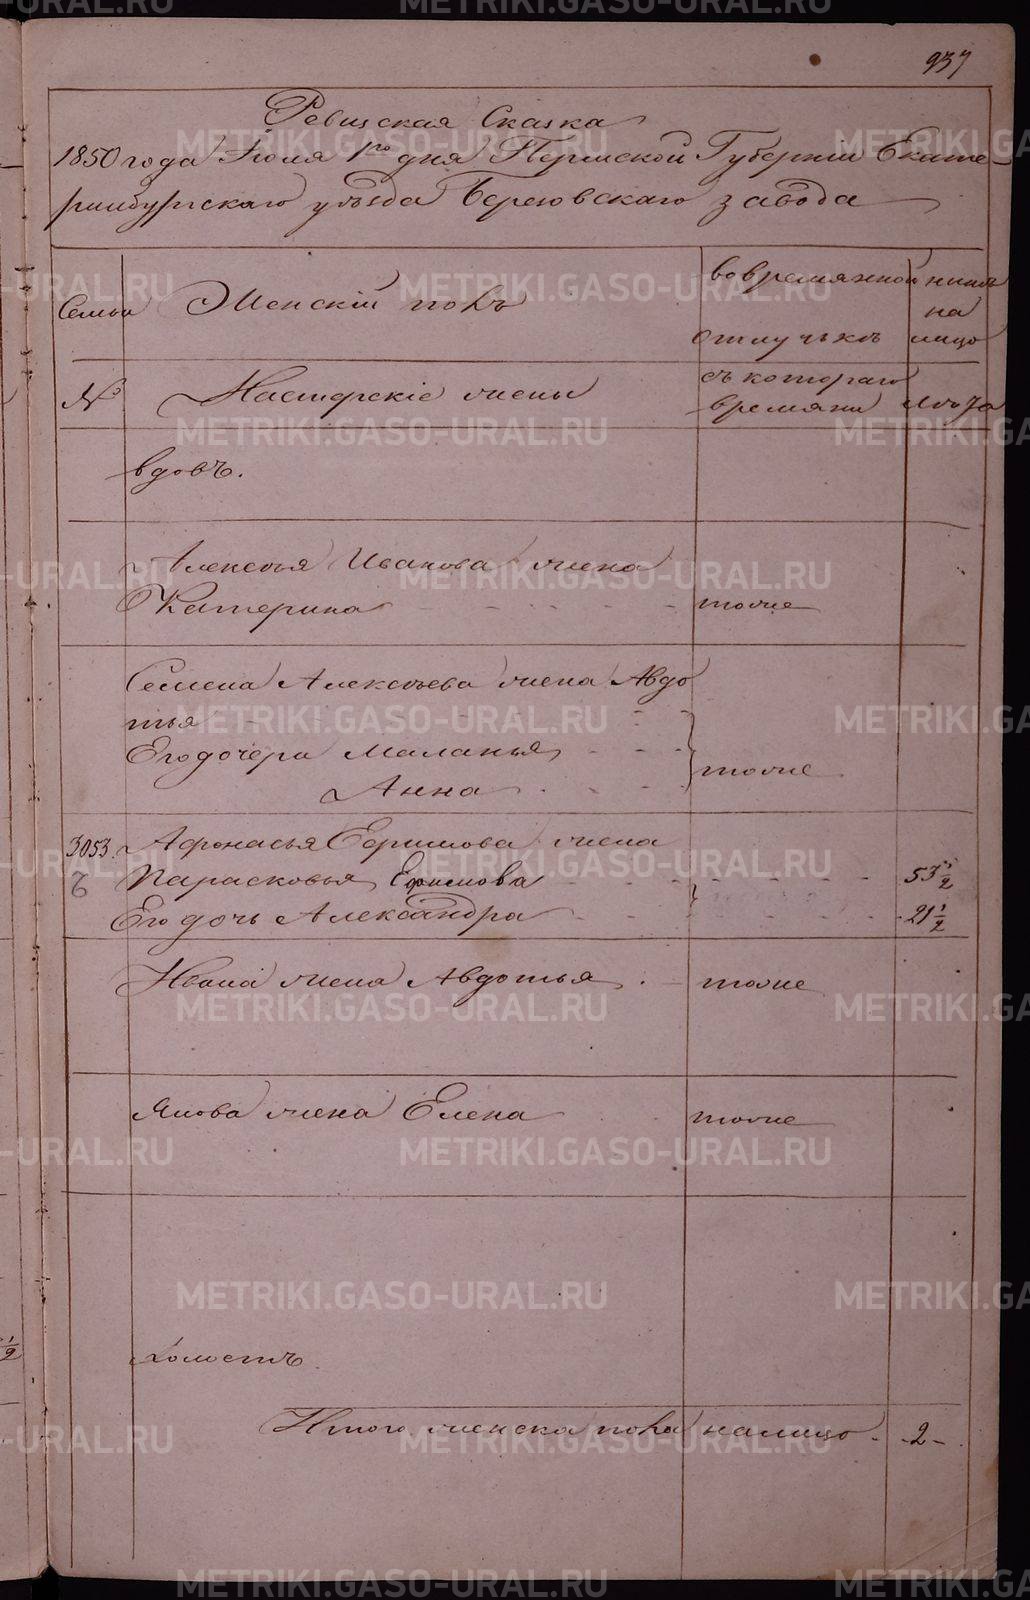 937
Ревизская Сказка
1850 года Июля 1го дня Пермской Губернии Екате-
ринбургскаго уѣзда Березовскаго завода
Семьи
Женскій полъ
во времянной
отлучькѣ
нынѣ
на
лицо
№
Мастерскіе жены
съ котораго
времяни
Лѣта
вдовъ.
Алексѣя Иванова жена
Катерина тоже
Семена Алексѣева жена Авдо
тья
Его дочери Маланья
Анна тоже
3053. Афонасья Ефимова жена
Парасковья Ефимова 53 1/2
Его дочь Александра 21 1/2
Ивана жена Авдотья тоже
Якова жена Елена тоже
холостъ
Итого женска пола налицо - 2 -
METRIKI.GASO-URAL.RU